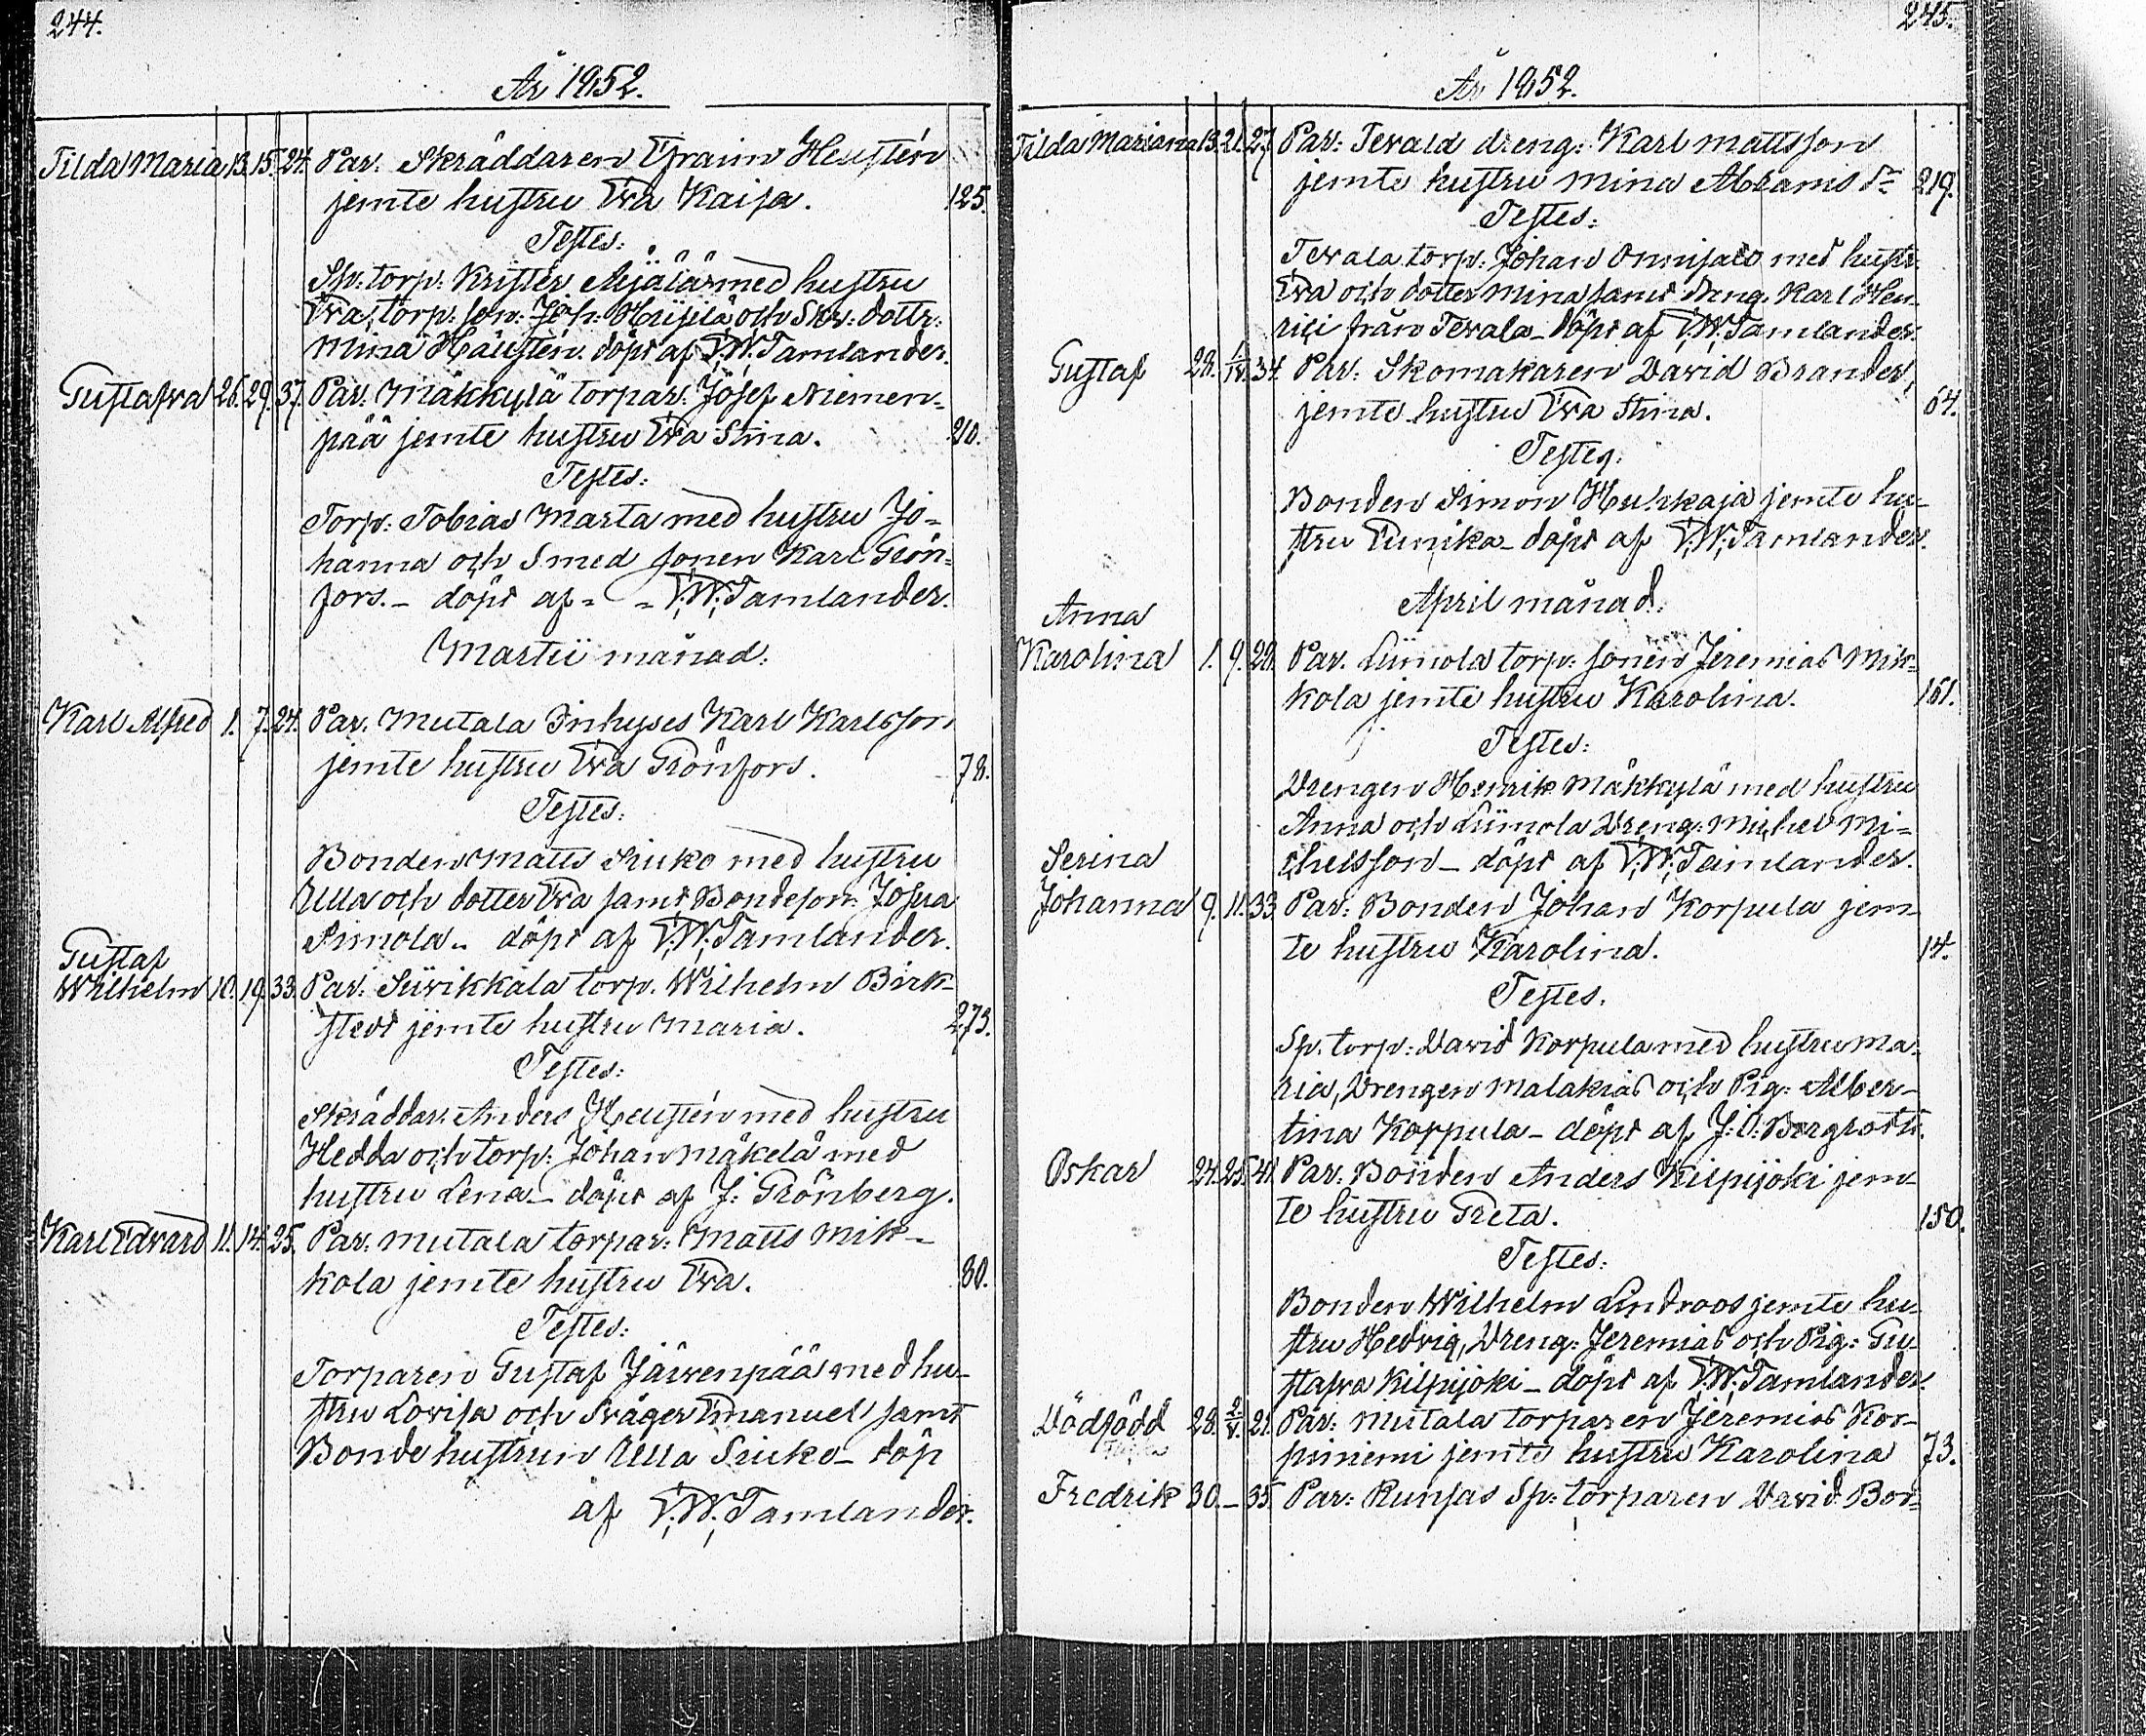 244.
År 1852.
Tilda Maria 13. 15. 24. Par. Skräddaren Efraim Heustén
jemte hustru Eva Kaisa. 125.
Testes:
Sp. torp: Krister Äijälä med hustru
Eva, torp: son: Joh: Heijilä och Skr: dottr:
Mina Häusten. döpt af F.W. Tamlander.
Gustafva 26. 29. 37. Par. Mäkkylä torpar: Josef Niemen-
pää jemte hustru Eva Stina. 210.
Testes:
Torp: Tobias Marta med hustru Jo-
hanna och Smed sonen Karl Grön-
fors. - döpt af - - F.W. Tamlander.
Martii månad.
Karl Alfred 1. 7. 24. Par. Mutala Inhyses Karl Karlsson
jemte hustru Eva Grönfors. 78.
Testes:
Bonden Matts Siuko med hustru
Ulla och dotter Eva samt Bondeson Josua
Simola - döpt af F.W. Tamlander.
Gustaf
Wilhelm 10. 19. 33. Par: Siivikkala torp. Wilhelm Birk-
stedt jemte hustru Maria. 273.
Testes:
Skräddar: Anders Heustén med hustru
Hedda och torp: Johan Mäkelä med
hustru Lena - döpt af J: Grönberg.
Karl Edvard 11. 14. 25. Par. Mutala torpar: Matts Mik-
kola jemte hustru Eva. 80.
Testes:
Torparen Gustaf Järvenpää med hu-
stru Lovisa och Svåger Emanuel samt
Bonde hustrun Ulla Siuko - döp
af F.W. Tamlander.
245.
År 1852.
Tilda Mariana 13. 21. 27. Par: Tevala dreng: Karl Mattsson
jemte hustru Mina Abrams dr 219.
Testes:
Tevala torp: Johan Onnisalo med hustr.
Eva och dotter Mina samt dreng. Karl Hen-
rici från Tevala - döpt af F.W. Tamlander.
Gustaf 28. 1/IV. 34. Par: Skomakaren David Brander,
jemte hustru Eva Stina. 64.
Testes:
Bonden Simon Hulckaja jemte hu-
stru Eunika - döpt af F.W. Tamlander.
April månad.
Anna
Karolina 1. 9. 28. Par. Liimola torp: sonen Jeremias Mik-
kola jemte hustru Karolina. 161.
Testes:
Drengen Henrik Mäkkylä med hustru
Anna och Liimola Dreng: Michel Mi-
chelsson - döpt af F.W. Tamlander.
Serina
Johanna 9. 11. 33. Par: Bonden Johan Korpula jem-
te hustru Karolina. 14.
Testes.
Sp. torp: David Korpula med hustru Ma-
ria, Drengen Malakias och Pig: Alber-
tina Korpula - döpt af J: O: Bergroth.
Oskar 24. 25. 41. Par: Bonden Anders Kilpijoki jem-
te hustru Greta. 150.
Testes:
Bonden Wilhelm Lindroos jemte hu-
stru Hedvig, Dreng: Jeremias och Pig: Gu-
stafva Kilpijoki - döpt af F.W. Tamlander.
Dödfödd 28. 2/V. 21. Par: Mutala torparen Jeremias Kor-
piniemi jemte hustru Karolina 73.
Fredrik 30. - 35. Par: Runsas Sp: torparen David Bor-